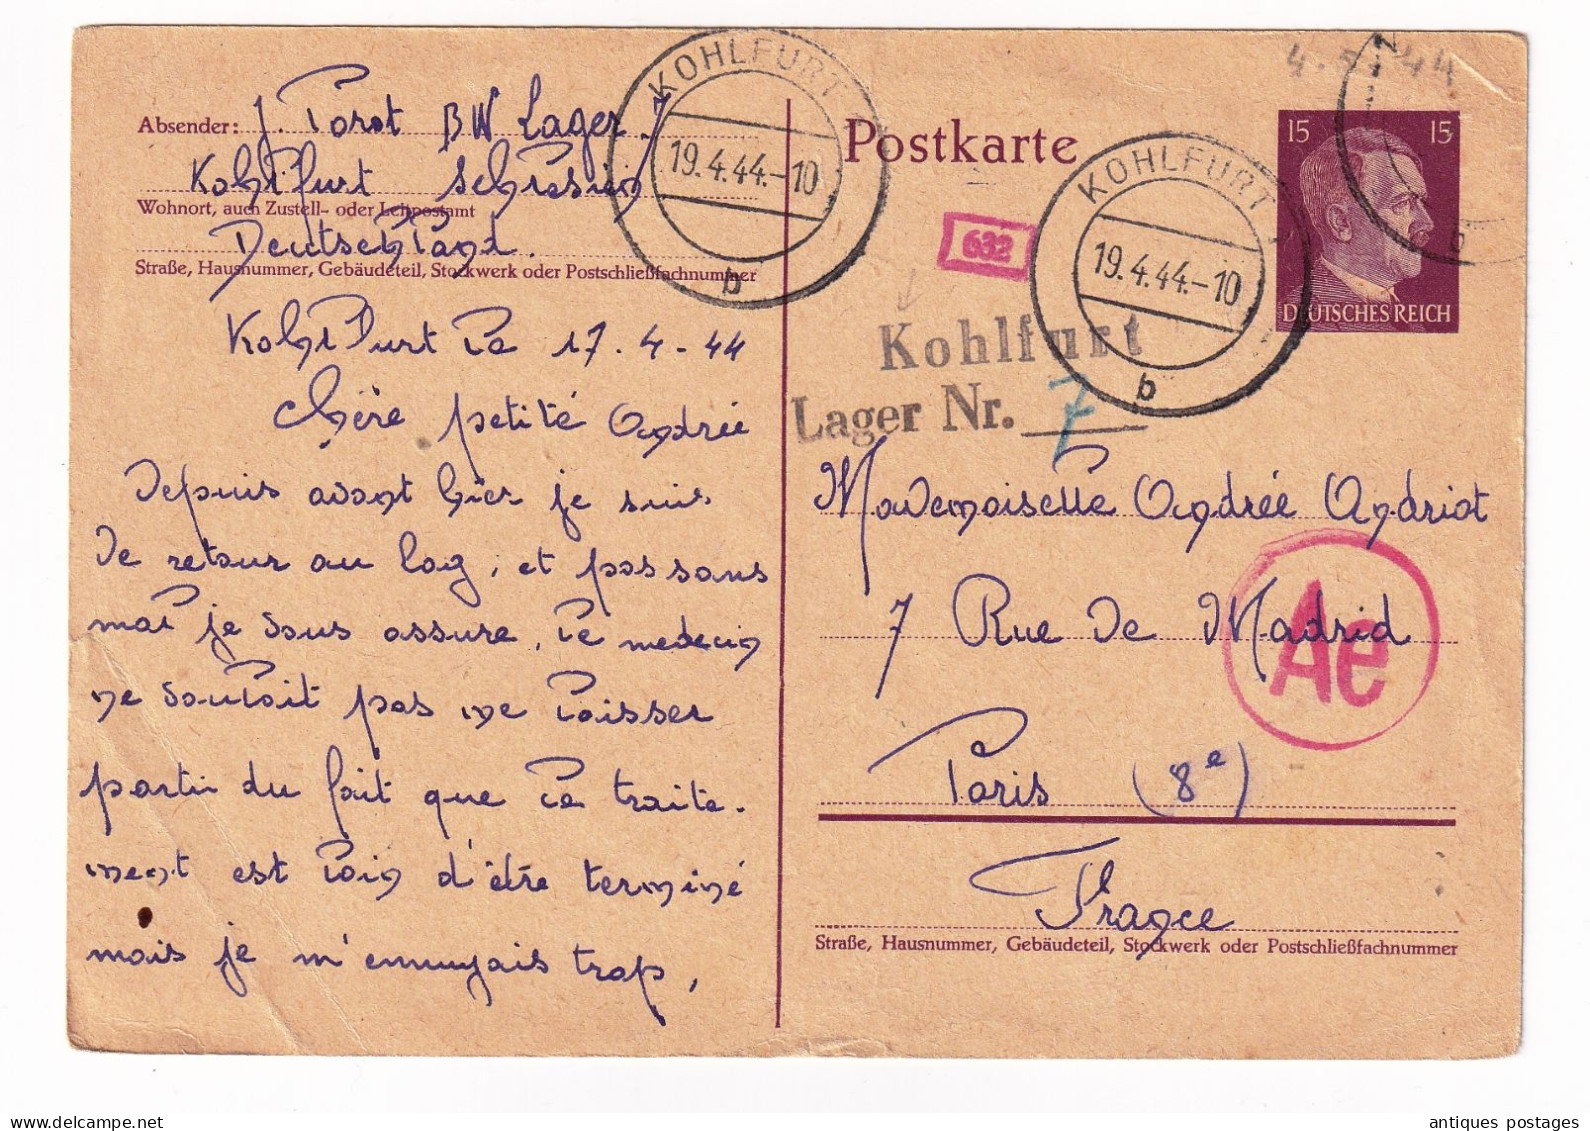 Absender: J. Porot BW Lager 7
Kohlfurt Schlesien
Wohnort, auch Zustell- oder Leitpostamt
Deutschland.
Straße, Hausnummer, Gebäudeteil, Stockwerk oder Postschließfachnummer
Kohlfurt le 17-4-44
Chère petite Andrée
Depuis avant hier je suis
de retour au lag, et pas sans
mal je vous assure, le medecin
ne voulait pas me laisser
partir du fait que le traite-
ment est loin d'être terminé
mais je m'ennuyais trop,
KOHLFURT
19.4.44.-10
b
Postkarte
632
KOHLFURT
19.4.44.-10
b
Kohlfurt
Lager Nr. 7
15 15
DEUTSCHES REICH
b
Mademoiselle Andrée Andriot
7 Rue de Madrid
Ae
Paris (8e)
France
Straße, Hausnummer, Gebäudeteil, Stockwerk oder Postschließfachnummer
antiques postages